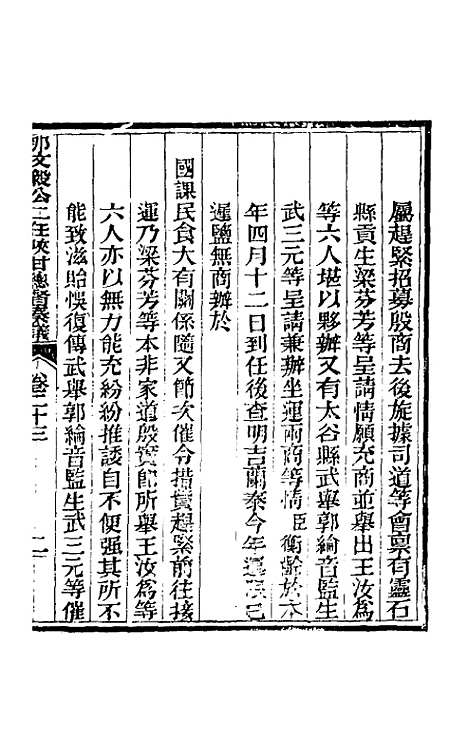 屬趕緊招募殷商去後旋據司道等會稟有靈石
縣貢生梁芬芳等呈請情願充商並舉出王汝為
等六人堪以夥辦又有太谷縣武舉郭綸音監生
武三元等呈請兼辦坐運兩商等情臣衡齡於本
年四月十二日到任後查明吉蘭泰今年運限已
遲鹽無商辦於
國課民食大有關係隨又節次催令措貲趕緊前往接
運乃梁芬芳等本非家道殷實即所舉王汝為等
六人亦以無力能充紛紛推諉自不便強其所不
能致滋貽悞復傳武舉郭綸音監生武三元等催
那文毅公二任陝甘總督奏議 卷二十三 二